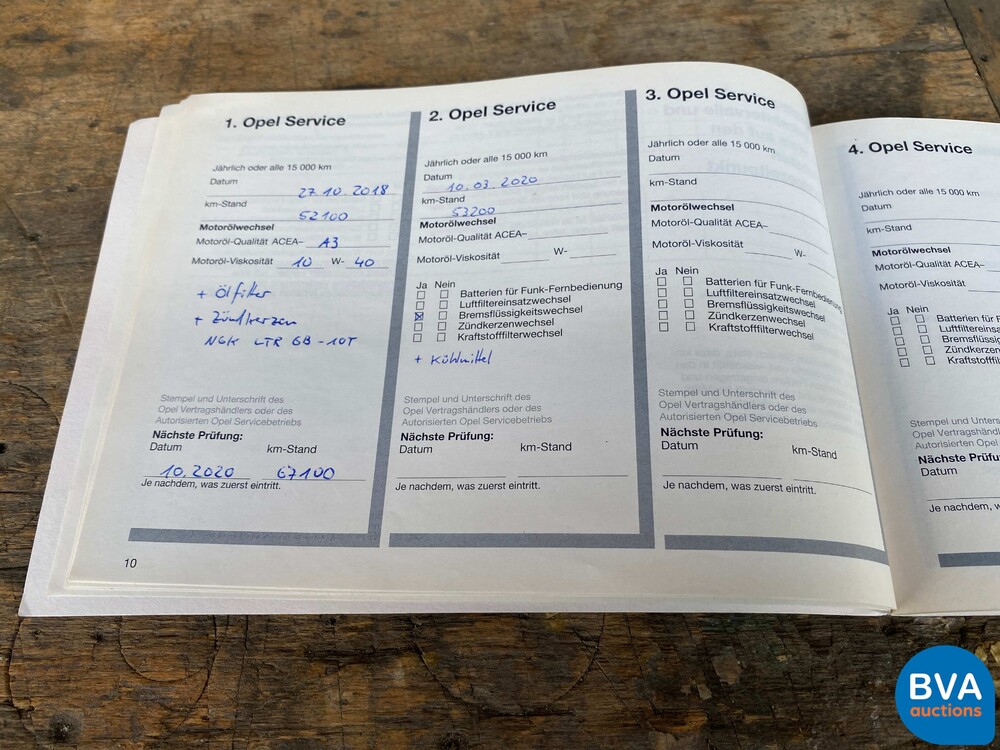 1. Opel Service
Jährlich oder alle 15 000 km
Datum 27.10.2018
km-Stand 52100
Motorölwechsel
Motoröl-Qualität ACEA– A3
Motoröl-Viskosität 10 W- 40
+ Ölfilter
+ Zündkerzen
NGK LTR 6B-10T
Stempel und Unterschrift des
Opel Vertragshändlers oder des
Autorisierten Opel Servicebetriebs
Nächste Prüfung:
Datum km-Stand
10.2020 67100
Je nachdem, was zuerst eintritt.
10
2. Opel Service
Jährlich oder alle 15 000 km
Datum
10.03.2020
km-Stand
53200
Motorölwechsel
Motoröl-Qualität ACEA–
Motoröl-Viskosität W-
Ja Nein
Batterien für Funk-Fernbedienung
Luftfiltereinsatzwechsel
Bremsflüssigkeitswechsel
Zündkerzenwechsel
Kraftstofffilterwechsel
+ Kühlmittel
Stempel und Unterschrift des
Opel Vertragshändlers oder des
Autorisierten Opel Servicebetriebs
Nächste Prüfung:
Datum km-Stand
Je nachdem, was zuerst eintritt.
3. Opel Service
Jährlich oder alle 15 000 km
Datum
km-Stand
Motorölwechsel
Motoröl-Qualität ACEA–
Motoröl-Viskosität W-
Ja Nein
Batterien für Funk-Fernbedienung
Luftfiltereinsatzwechsel
Bremsflüssigkeitswechsel
Zündkerzenwechsel
Kraftstofffilterwechsel
Stempel und Unterschrift des
Opel Vertragshändlers oder des
Autorisierten Opel Servicebetriebs
Nächste Prüfung:
Datum km-Stand
Je nachdem, was zuerst eintritt.
4. Opel Service
Jährlich oder alle 15 000 km
Datum
km-Stand
Motorölwechsel
Motoröl-Qualität ACEA–
Motoröl-Viskosität
Ja Nein
Batterien für F
Luftfiltereinsa
Bremsflüssig
Zündkerzen
Kraftstofffil
Stempel und Unterschrif
Opel Vertragshändl
Autorisierten Opel
Nächste Prüfu
Datum
Je nachdem, w
BVA
auctions